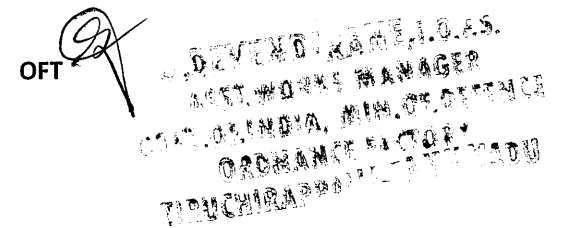 OFT
DEVENDI
I.O.A.S.
ASST. WORKS MANAGER
GOVT. OF. INDIA, MIN. OF. DEFENCE
ORDNANCE FACTORY
TIRUCHIRAPPALLI